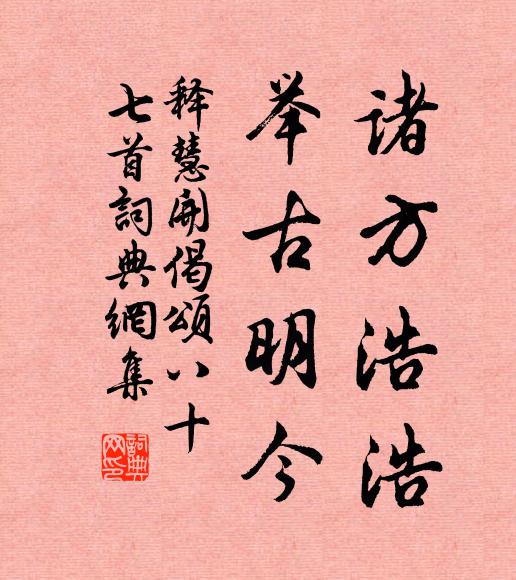 諸方浩浩
举古明今
释慧開偈頌八十
七首詞典網集
詞典网印